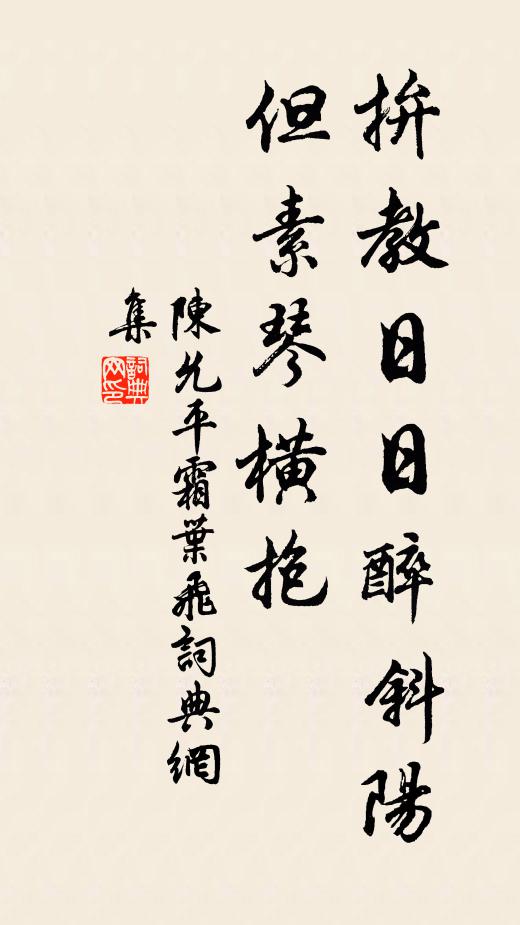 拚教日日醉斜陽
但素琴橫抱
陳允平霜葉飛詞典網
集
詞典
网印